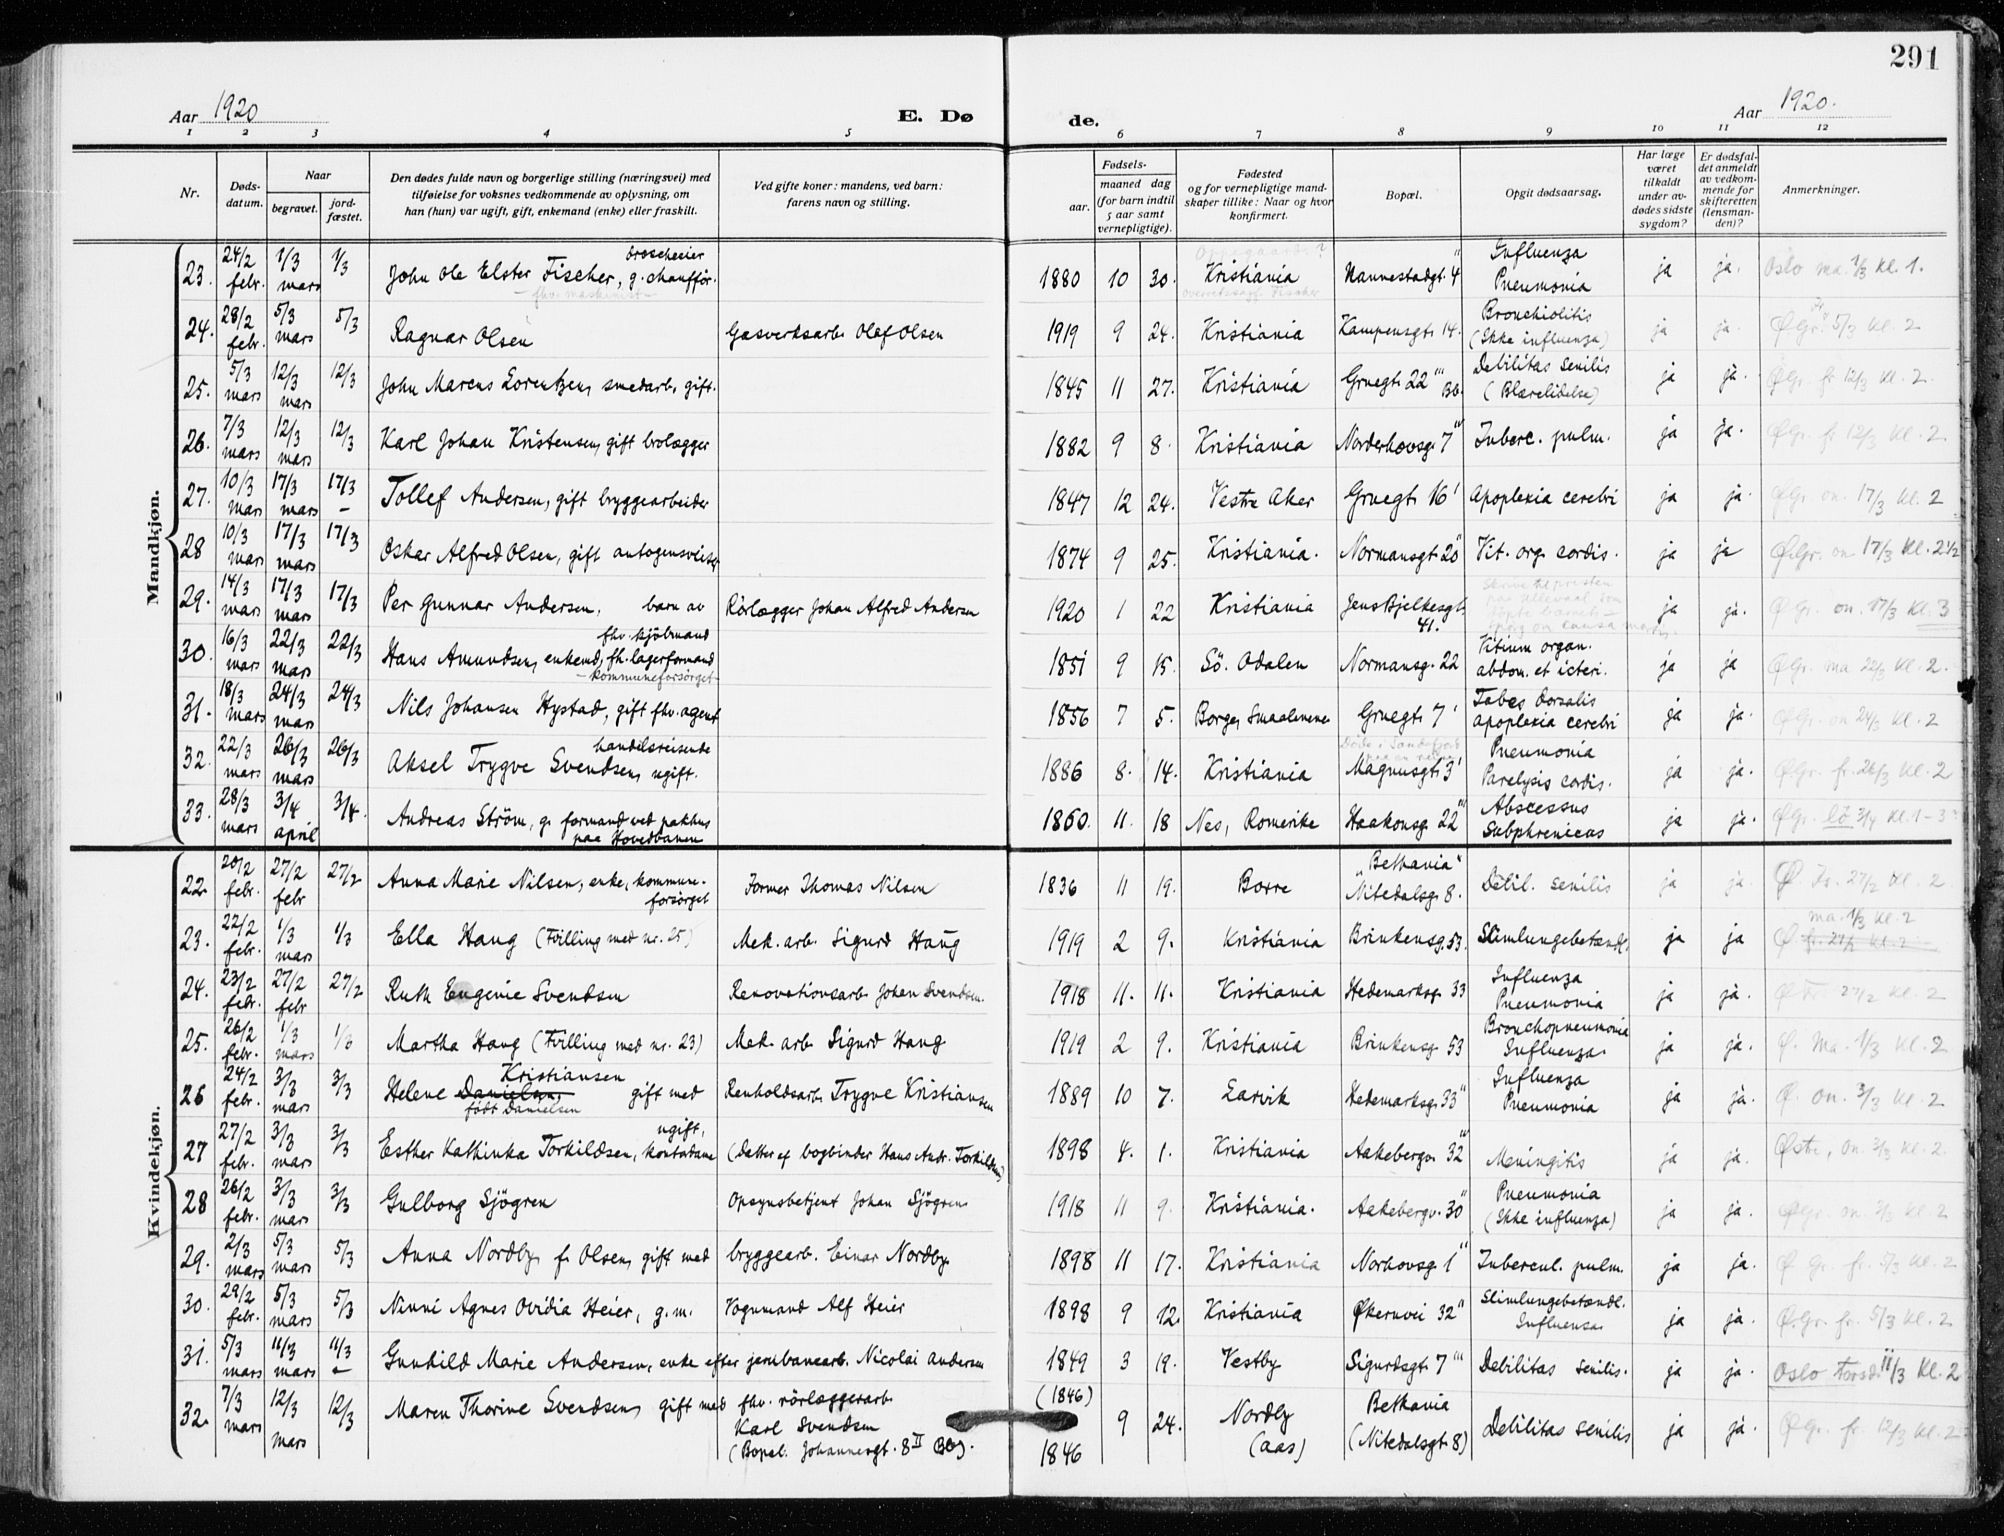 291
Aar 1920
E. Dø
de.
Aar 1920.
1 2 3 4 5 6 7 8 9 10 11 12
Nr.
Døds-
datum.
Naar
begravet.
jord-
fæstet.
Den dødes fulde navn og borgerlige stilling (næringsvei) med
tilføielse for voksnes vedkommende av oplysning, om
han (hun) var ugift, gift, enkemand (enke) eller fraskilt.
Ved gifte koner: mandens, ved barn:
farens navn og stilling.
Fødsels-
aar.
maaned dag
(for barn indtil
5 aar samt
vernepligtige).
Fødested
og for vernepligtige mand-
skaper tillike: Naar og hvor
konfirmert.
Bopæl.
Opgit dødsaarsag.
Har læge
været
tilkaldt
under av-
dødes sidste
sygdom?
Er dødsfal-
det anmeldt
av vedkom-
mende for
skifteretten
(lensman-
den)?
Anmerkninger.
Mandkjøn.
23. 24/2 febr. 1/3 mars 1/3 John Ole Elster Fischer, g. droscheeier chauffør. 1880 10 30. Kristiania Mannestadgt. 4" Influenza Pneumonia ja ja. Oslo ma. 1/3 kl. 1.
24. 28/2 febr. 5/3 mars 5/3 Ragnar Olsen Gasverksarb. Olaf Olsen 1919 9 24. Kristiania Kampensgt. 14. Bronchiolitis (Ikke influenza) ja ja. ØGr. 5/3 kl. 2
25. 5/3 mars 12/3 mars 12/3 John Marens Lorentzen, smedarb. gift. 1845 11 27. Kristiania Gruegt. 22''' Bb. Debilitas senilis (Blærelidelse) ja ja. ØGr. fr. 12/3 kl. 2.
26. 7/3 mars 12/3 mars 12/3 Karl Johan Kristensen, gift brolægger 1882 9 8. Kristiania Norderhovsg. 7''' Tuberc. pulm. ja ja. ØGr. fr. 12/3 kl. 2.
27. 10/3 mars 17/3 mars 17/3 Tollef Andersen, gift bryggearbeider 1847 12 24. Vestre Aker Gruegt. 16' Apoplexia cerebri ja ja. ØGr. on. 17/3 kl. 2
28 10/3 mars 17/3 mars 17/3 Oskar Alfred Olsen, gift autogensveiser 1874 9 25. Kristiania. Normansgt. 20" Vit. org. cordis. ja ja ØGr. on 17/3 kl. 2 1/2
29. 14/3 mars 17/3 mars 17/3 Per Gunnar Andersen, barn av Rørlægger Johan Alfred Andersen 1920 1 22 Kristiania Jens Bjelkesgt. 41. ja ja. ØGr. on. 17/3 kl. 3
30. 16/3 mars 22/3 mars 22/3 Hans Amundsen, enkemd, fhv. kjøbmand fh. lagerformand -kommuneforsørget- 1851 9 15. Sö. Odalen Normansg. 22 Vitium organ. abdom. et icteri. ja ja ØGr. ma 22/3 kl. 2.
31. 18/3 mars 24/3 mars 24/3 Nils Johansen Hystad, gift fhv. agent 1856 7 5. Borge, Smaalenene Gruegt. 7' Tabes dorsalis apoplexia cerebri ja ja. ØGr. on 24/3 kl. 2
32. 22/3 mars 26/3 mars 26/3 Aksel Trygve Svendsen, handelsreisende ugift. 1886 8. 14. Kristiania Døde i Sandefjord Magnusgt. 3' Pneumonia Paralysis cordis. ja ja. ØGr. fr. 26/3 kl. 2
33. 28/3 mars 3/4 april 3/4. Andreas Ström, g. formand ved pakhus paa Hovedbanen 1860. 11. 18 Nes, Romerike Haakonsg. 22''' Abscessus Subphrenicus ja ja. ØGr. lö 3/4 kl. 1-3
Kvindekjøn.
22. 20/2 febr. 27/2 febr 27/2 Anna Marie Nilsen, enke, kommune-forsörget Former Thomas Nilsen 1836 11 19. Borre "Bethania" Nitedalsg. 8. Debil. senilis ja ja Ø. fr. 27/2 kl. 2
23. 22/2 febr. 1/3 mars 1/3 Ella Haug (Tvilling med nr. 25) Mek. arb. Sigurd Haug 1919 2 9. Kristiania Brinkensg. 53. Slimlungebetændl. ja ja ma. 1/3 kl. 2 Ø fr. 27/2 kl. 2
24. 23/2 febr. 27/2 febr 27/2 Ruth Eugenie Svendsen Renovationsarb. Johan Svendsen. 1918 11. 11. Kristiania Hedemarksg. 33 Influenza Pneumonia ja ja. Ø fr. 27/2 kl. 2
25. 26/2 febr. 1/3 mars 1/3 Martha Haug (Tvilling med nr. 23) Mek. arb. Sigurd Haug 1919 2 9. Kristiania Brinkensg. 53 Bronchopneumonia Influenza. ja ja. Ø. Ma. 1/3 kl. 2
26 24/2 febr. 3/3 mars 3/3 Helene Danielsen, Kristiansen født Danielsen gift med Renholdsarb. Trygve Kristiansen 1889 10 7. Larvik Hedemarksg. 33" Influenza Pneumonia ja ja. Ø. on. 3/3 kl. 2
27 27/2 febr. 3/3 mars 3/3 Esther Kathinka Torkildsen, ugift, kontordame (Datter af bogbinder Hans Andr. Torkildsen) 1898 4. 1. Kristiania Aakebergv. 32''' Meningitis ja ja. Østre, on. 3/3 kl. 2.
28 26/2 febr. 3/3 mars 3/3 Gulborg Sjögren Opsynsbetjent Johan Sjögren 1918 11 9. Kristiania. Aakebergv. 30" Pneumonia (Ikke influenza) ja ja. ØGr. on. 3/3 kl. 2
29. 2/3 mars 5/3 mars 5/3 Anna Nordby, f. Olsen, gift med bryggearb. Einar Nordby. 1898 11 17. Kristiania Norhovsg. 1" Tubercul. pulm. ja ja. Ø Gr. fr. 5/3 kl. 2
30. 29/2 febr. 5/3 mars 5/3 Ninni Agnes Ovidia Heier, g. m. Vognmand Alf Heier 1898 9 12. Kristiania Økernvei 32" Slimlungebetændl. Influensa ja ja. Ø.Gr. fr. 5/3 kl. 2
31. 5/3 mars 11/3 mars 11/3 Gunhild Marie Andersen, enke efter jernbanearb. Nicolai Andersen 1849 3 19. Vestby Sigurdsgt. 7''' Debilitas senilis. ja ja. Oslo Torsd. 11/3 kl. 2
32. 7/3 mars 12/3 mars 12/3 Maren Thorine Svendsen, gift med fhv. rörlæggerarb. Karl Svendsen (Bopæl. Johannesgt. 8 II Bb.). (1846) 1846 9 24. Nordby (Aas) Bethania (Nitedalsgt. 8) Debilitas senilis ja ja. ØGr. fr. 12/3 kl. 2